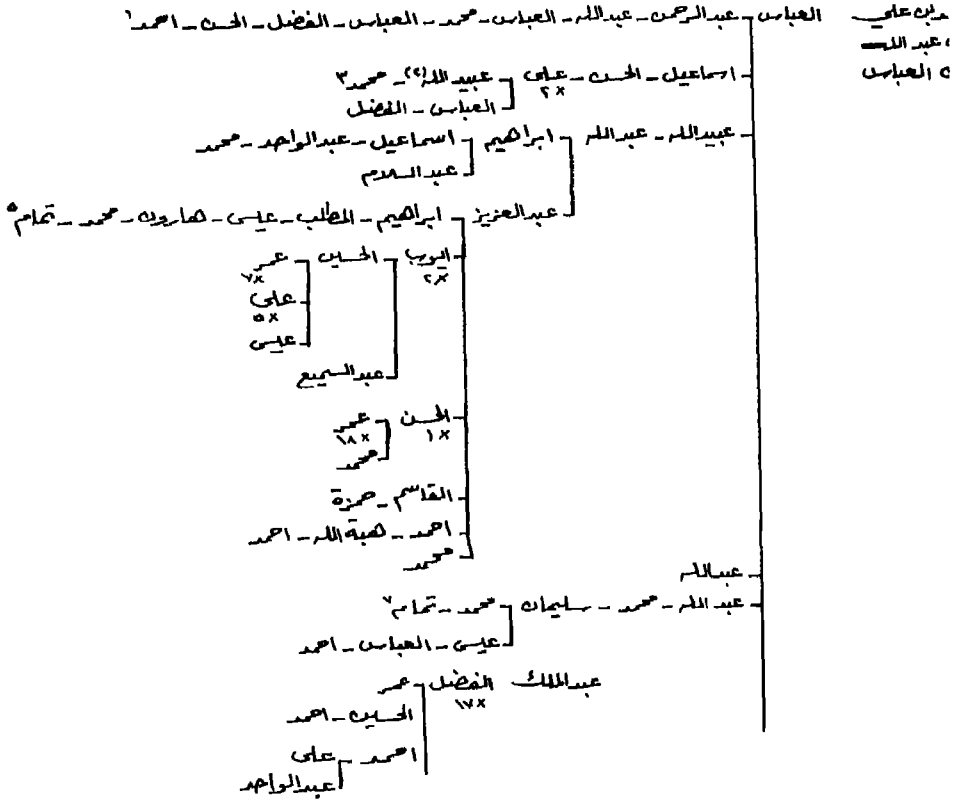 بن علي العباس عبدالرحمن – عبدالله – العباس – محمد – العباس – الفضل – الحسن – احمد١
عبد الله
العباس
اسماعيل – الحسن – علي عبيد الله(٢٢) – محمد٣
×٢
العباس – الفضل
عبيدالله – عبدالله ابراهيم اسماعيل – عبدالواحد – محمد
عبدالسلام
عبدالعزيز ابراهيم – المطلب – عيسى – هارون – محمد – تمام٥
ايوب الحسين عمر
×٢ ×٧
علي
×٥
عيسى
عبدالسميع
الحسن عمر
×١ ×١٨
محمد
القاسم – حمزة
احمد – هبة الله – احمد
محمد
عبدالله
عبد الله – محمد – سليمان محمد – تمام٧
عيسى – العباس – احمد
عبدالملك الفضل عمر
×١٧
الحسين – احمد
احمد علي
عبدالواحد